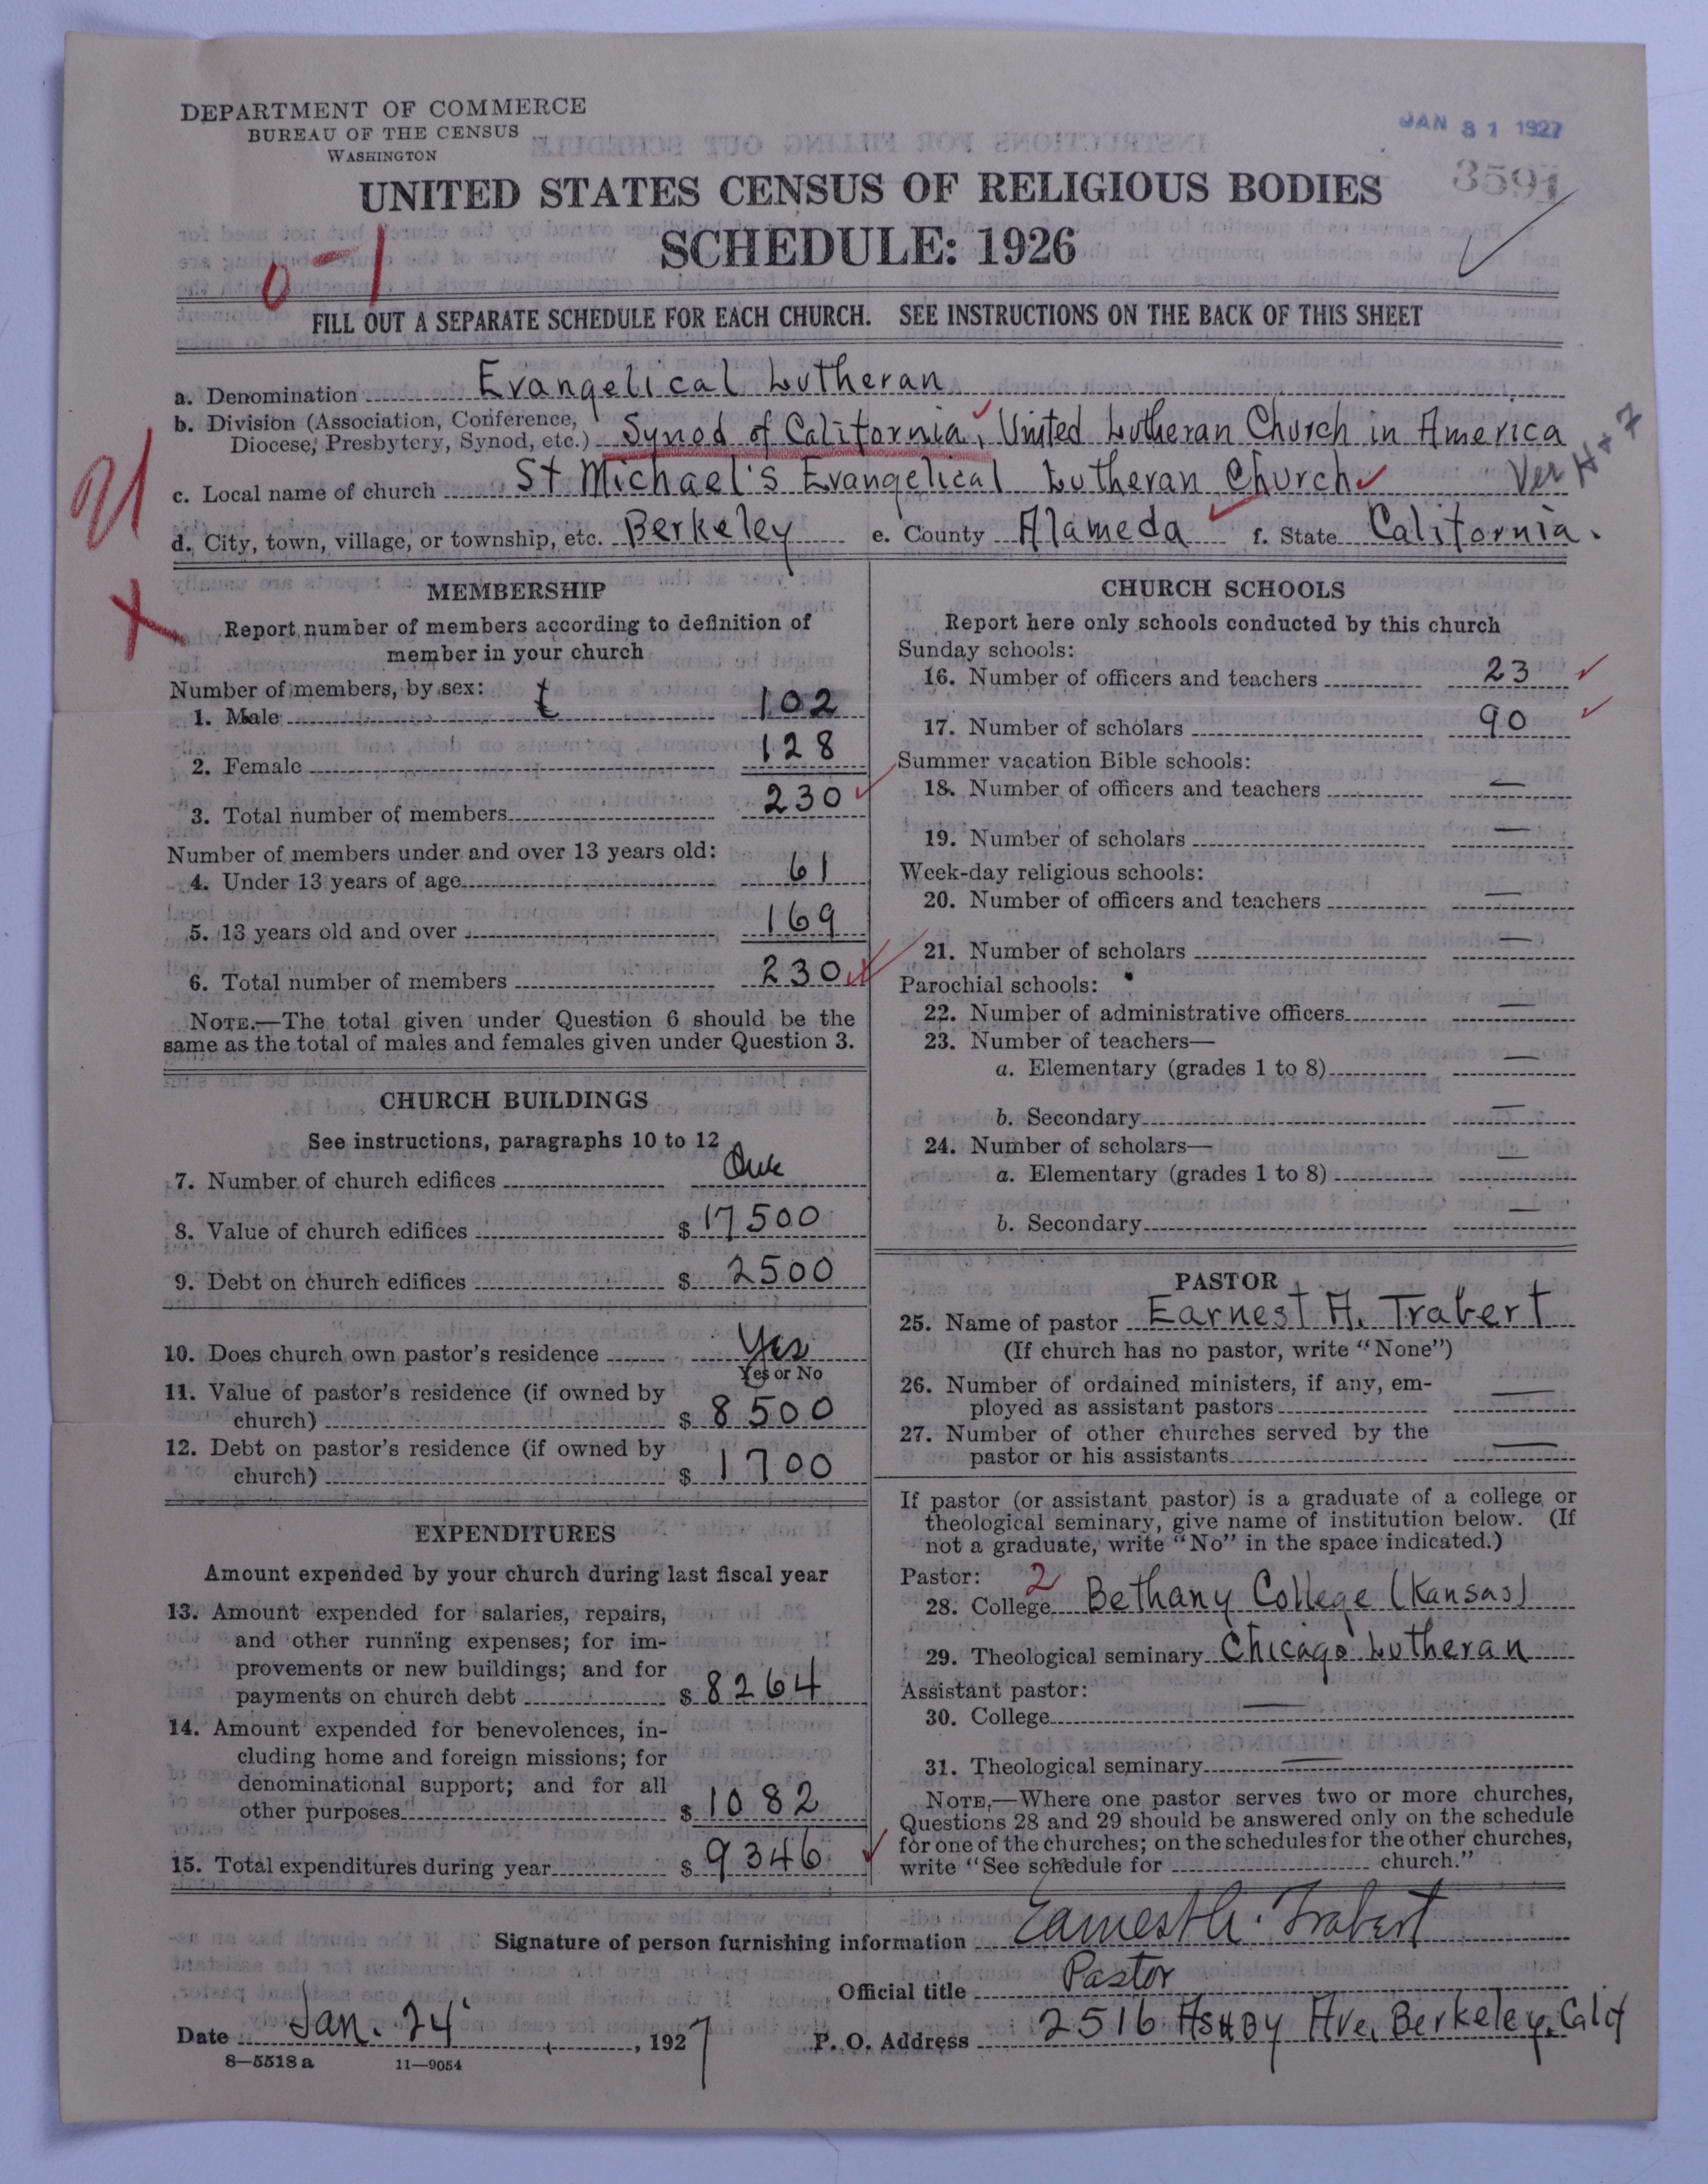 DEPARTMENT OF COMMERCE
BUREAU OF THE CENSUS
WASHINGTON
JAN 31 1927
3591
UNITED STATES CENSUS OF RELIGIOUS BODIES
SCHEDULE: 1926
0-1
FILL OUT A SEPARATE SCHEDULE FOR EACH CHURCH. SEE INSTRUCTIONS ON THE BACK OF THIS SHEET
a. Denomination Evangelical Lutheran
b. Division (Association, Conference,
Diocese, Presbytery, Synod, etc.) Synod of California, United Lutheran Church in America
c. Local name of church St Michael's Evangelical Lutheran Church
Ver
d. City, town, village, or township, etc. Berkeley e. County Alameda f. State California.
MEMBERSHIP
Report number of members according to definition of
member in your church
Number of members, by sex: t
1. Male 102
2. Female 128
3. Total number of members 230
Number of members under and over 13 years old:
4. Under 13 years of age 61
5. 13 years old and over 169
6. Total number of members 230
NOTE.—The total given under Question 6 should be the
same as the total of males and females given under Question 3.
CHURCH BUILDINGS
See instructions, paragraphs 10 to 12
7. Number of church edifices One
8. Value of church edifices $ 17500
9. Debt on church edifices $ 2500
10. Does church own pastor's residence Yes
Yes or No
11. Value of pastor's residence (if owned by
church) $ 8500
12. Debt on pastor's residence (if owned by
church) $ 1700
EXPENDITURES
Amount expended by your church during last fiscal year
13. Amount expended for salaries, repairs,
and other running expenses; for im-
provements or new buildings; and for
payments on church debt $ 8264
14. Amount expended for benevolences, in-
cluding home and foreign missions; for
denominational support; and for all
other purposes $ 1082
15. Total expenditures during year $ 9346
CHURCH SCHOOLS
Report here only schools conducted by this church
Sunday schools:
16. Number of officers and teachers 23
17. Number of scholars 90
Summer vacation Bible schools:
18. Number of officers and teachers —
19. Number of scholars —
Week-day religious schools:
20. Number of officers and teachers —
21. Number of scholars —
Parochial schools:
22. Number of administrative officers —
23. Number of teachers—
a. Elementary (grades 1 to 8) —
b. Secondary —
24. Number of scholars—
a. Elementary (grades 1 to 8) —
b. Secondary —
PASTOR
25. Name of pastor Earnest A. Trabert
(If church has no pastor, write "None")
26. Number of ordained ministers, if any, em-
ployed as assistant pastors —
27. Number of other churches served by the
pastor or his assistants —
If pastor (or assistant pastor) is a graduate of a college or
theological seminary, give name of institution below. (If
not a graduate, write "No" in the space indicated.)
Pastor: 2
28. College Bethany College (Kansas)
29. Theological seminary Chicago Lutheran
Assistant pastor:
30. College —
31. Theological seminary —
NOTE.—Where one pastor serves two or more churches,
Questions 28 and 29 should be answered only on the schedule
for one of the churches; on the schedules for the other churches,
write "See schedule for church."
Signature of person furnishing information Earnest A. Trabert
Official title Pastor
Date Jan. 24, 1927 P. O. Address 2516 Ashby Ave, Berkeley, Calif
8—5518 a 11—9054